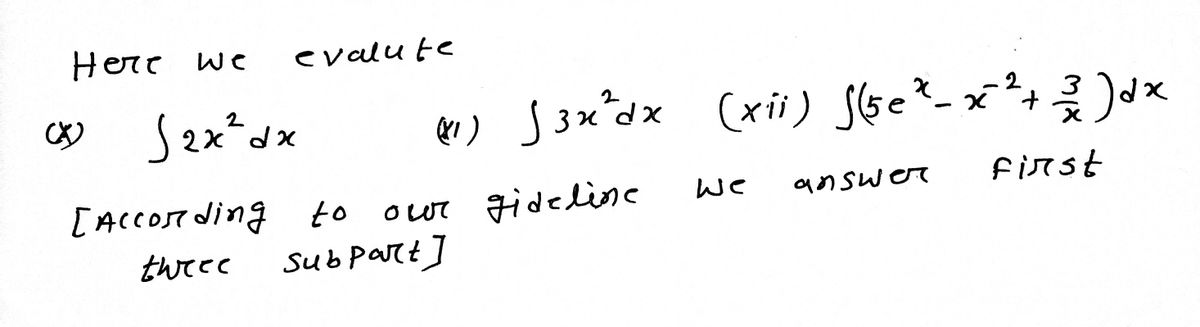 Here we evalute
(x) ∫2x²dx (xi) ∫3x²dx (xii) ∫(5eˣ - x⁻² + 3/x)dx
[According to our gideline we answer first
three subpart]